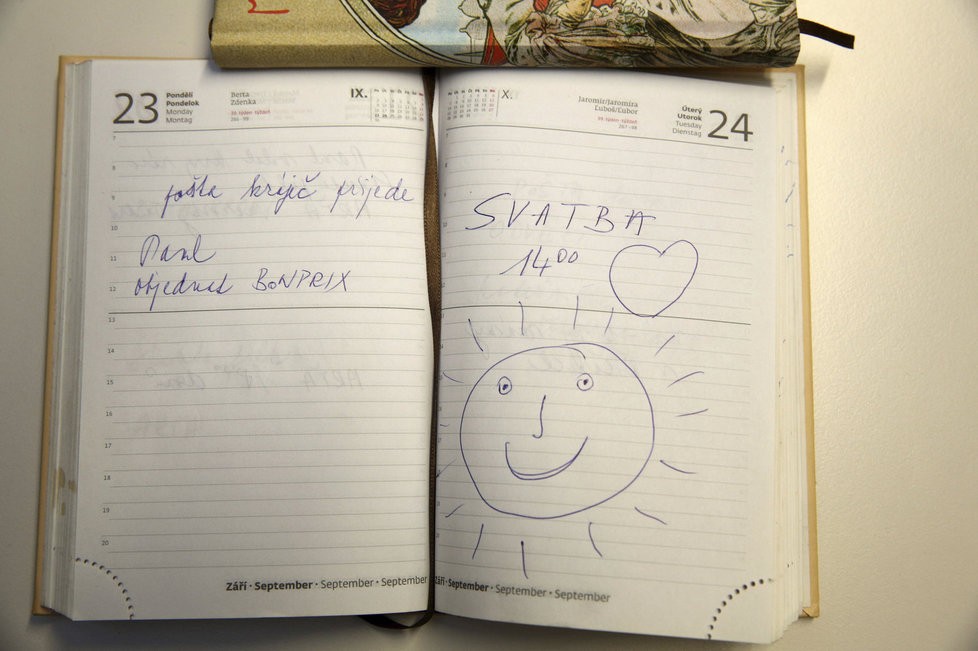 23
Pondělí
Pondelok
Monday
Montag
Berta
Zdenka
39. týden · týždeň
266 – 99
IX.
7
8
9
10
11
12
13
14
15
16
17
18
19
20
pošta krájíč přijede
Pavel
objednat BONPRIX
Září · September · September · September
X.
Jaromír/Jaromíra
Ľuboš/Ľubor
39. týden · týždeň
267 – 98
Úterý
Utorok
Tuesday
Dienstag
24
SVATBA
14 00
Září · September · September · September